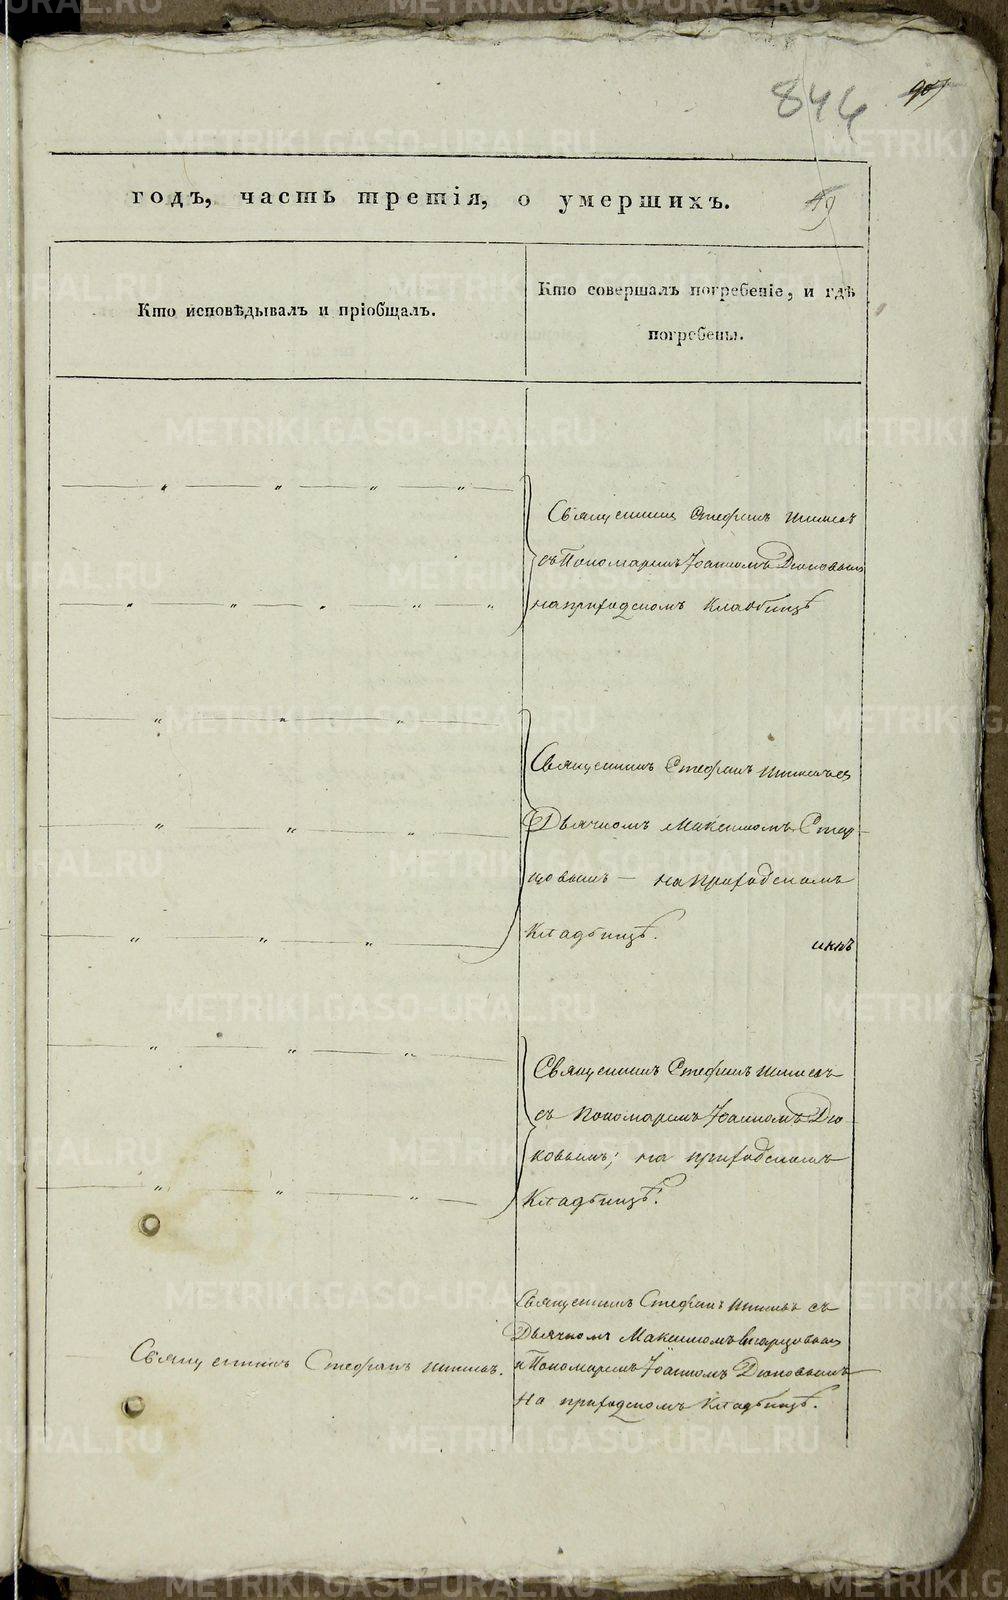 846
годъ, часть третія, о умершихъ.
Кто исповѣдывалъ и пріобщалъ.
Кто совершалъ погребеніе, и гдѣ
погребены.
Священникъ Стефанъ
съ Пономаремъ Іоанномъ Дюковымъ
на приходскомъ кладбищѣ
Священникъ Стефанъ
Дьячкомъ Максимомъ Стар-
цовымъ — на приходскомъ
кладбищѣ.
Священникъ Стефанъ
съ Пономаремъ Іоанномъ Дю-
ковымъ; на приходскомъ
кладбищѣ.
Священникъ Стефанъ
Священникъ Стефанъ съ
Дьячкомъ Максимомъ Старцовымъ
и Пономаремъ Іоанномъ Дюковымъ
на приходскомъ кладбищѣ.
METRIKI.GASO-URAL.RU